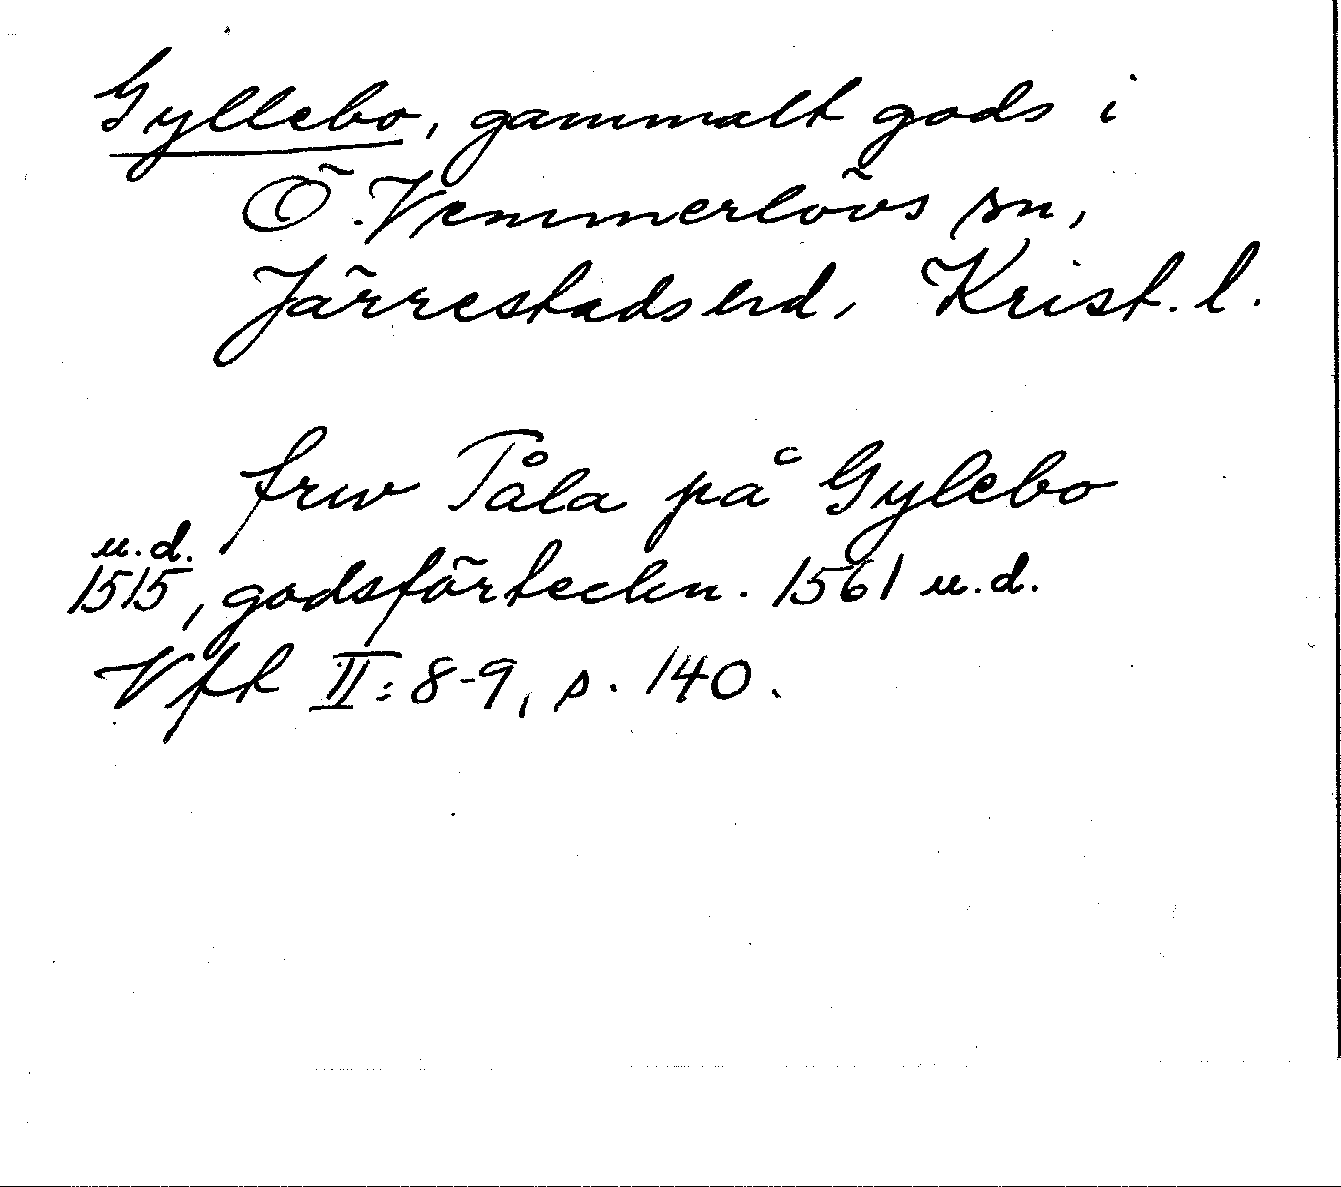 Gyllebo, gammalt gods i
Ö. Vemmerlövs sn,
Järrestads hd, Krist. l.
frw Påla på Gylebo
u.d.
1515, godsförteckn. 1561 u.d.
Vfk II:8-9, s. 140.